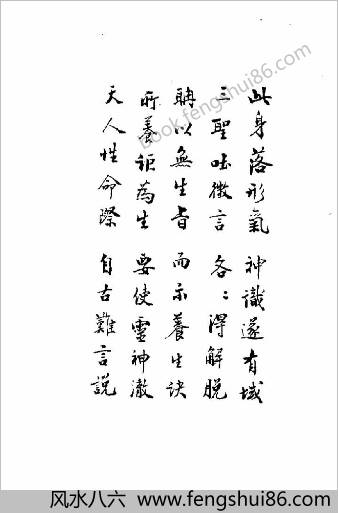 此身落形氣 神識遂有域
三聖吐微言 各各得解脫
聃以無生旨 而示養生訣
所養詎為生 要使靈神澈
天人性命際 自古難言說
book.fengshui86.com
风水八六 www.fengshui86.com